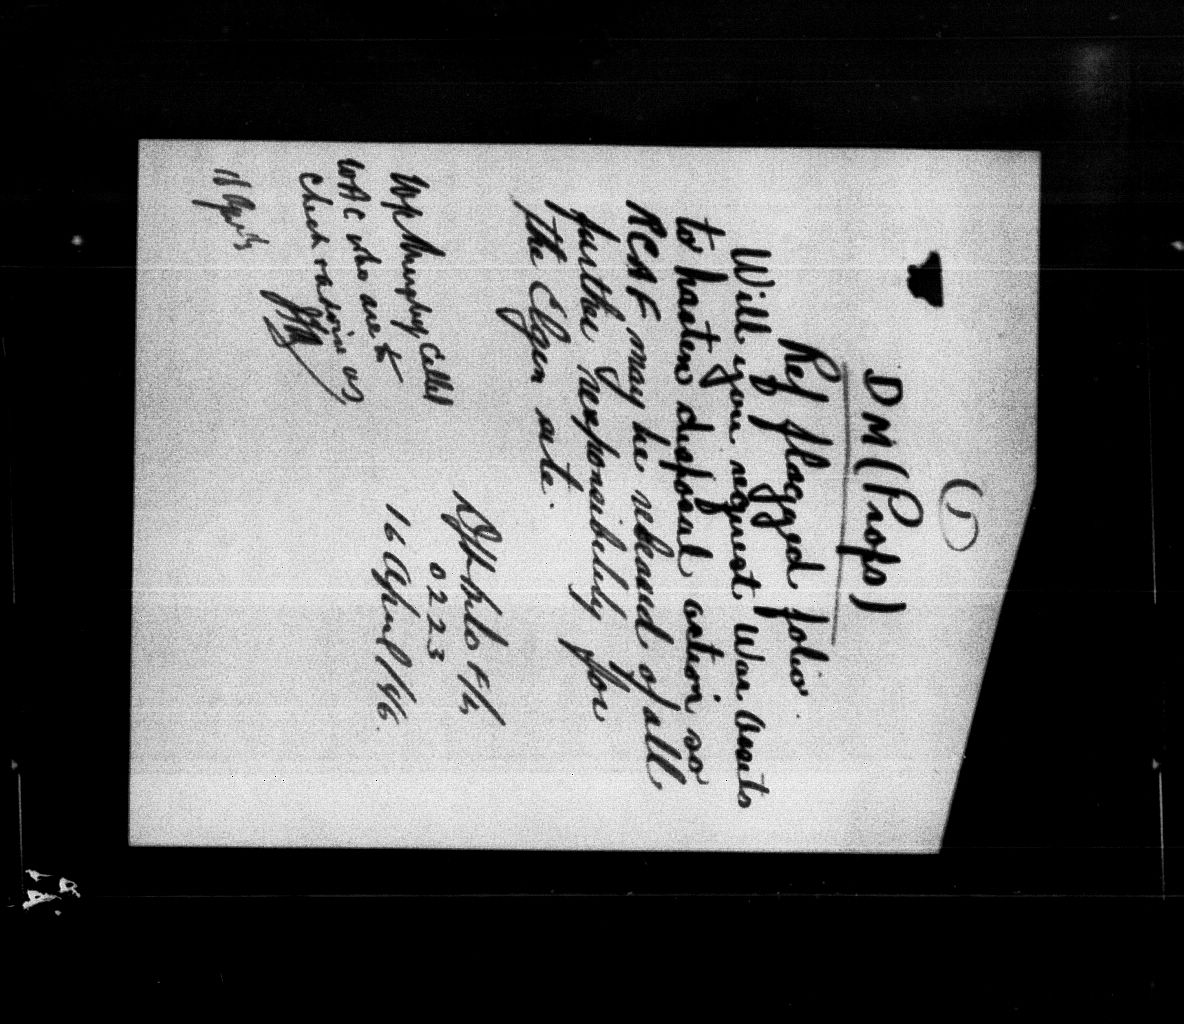 (1)
DM (Props)
Ref flagged folio
Will you request War Assets
to hasten disposal action so
RCAF may be relieved of all
further responsibility for
the Elgin site.
F/L
0223
16 April/46.
Murphy called
WAC who are to
check & advise us